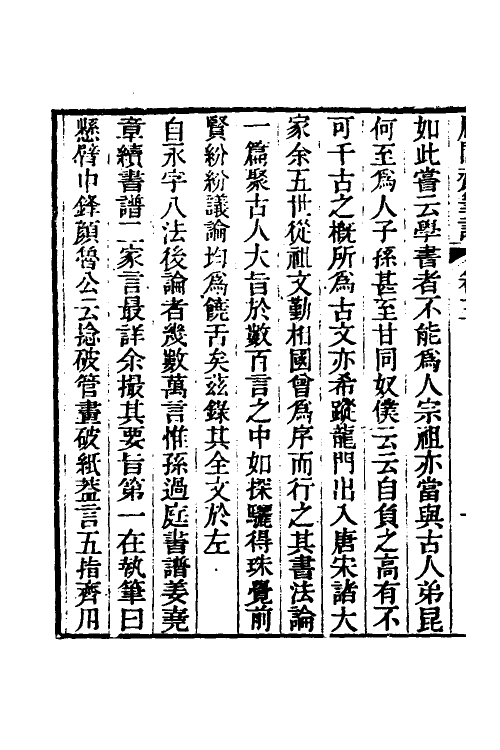 如此嘗云學書者不能爲人宗祖亦當與古人弟昆
何至爲人子孫甚至甘同奴僕云云自負之高有不
可千古之槪所爲古文亦希蹤龍門出入唐宋諸大
家余五世從祖文勤相國曾爲序而行之其書法論
一篇聚古人大旨於數百言之中如探驪得珠覺前
賢紛紛議論均爲饒舌矣玆錄其全文於左
自永字八法後論者幾數萬言惟孫過庭書譜姜堯
章續書譜二家言最詳余撮其要旨第一在執筆曰
懸臂中鋒顏魯公云捻破管畫破紙葢言五指齊用